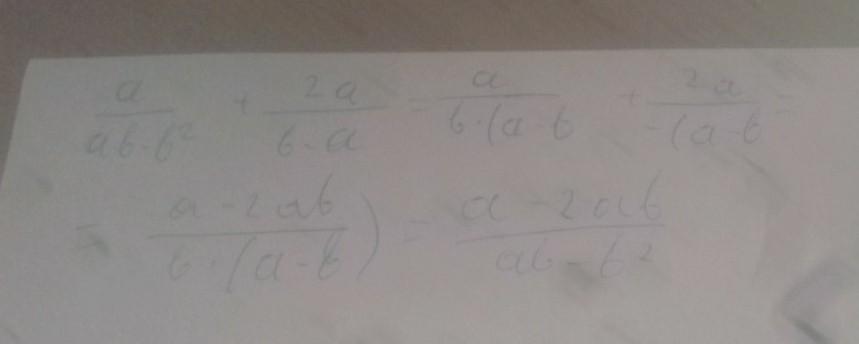 a/(ab-b²) + 2a/(b-a) = a/(b·(a-b + 2a/(-(a-b =
= (a-2ab)/(b·(a-b)) = (a-2ab)/(ab-b²)